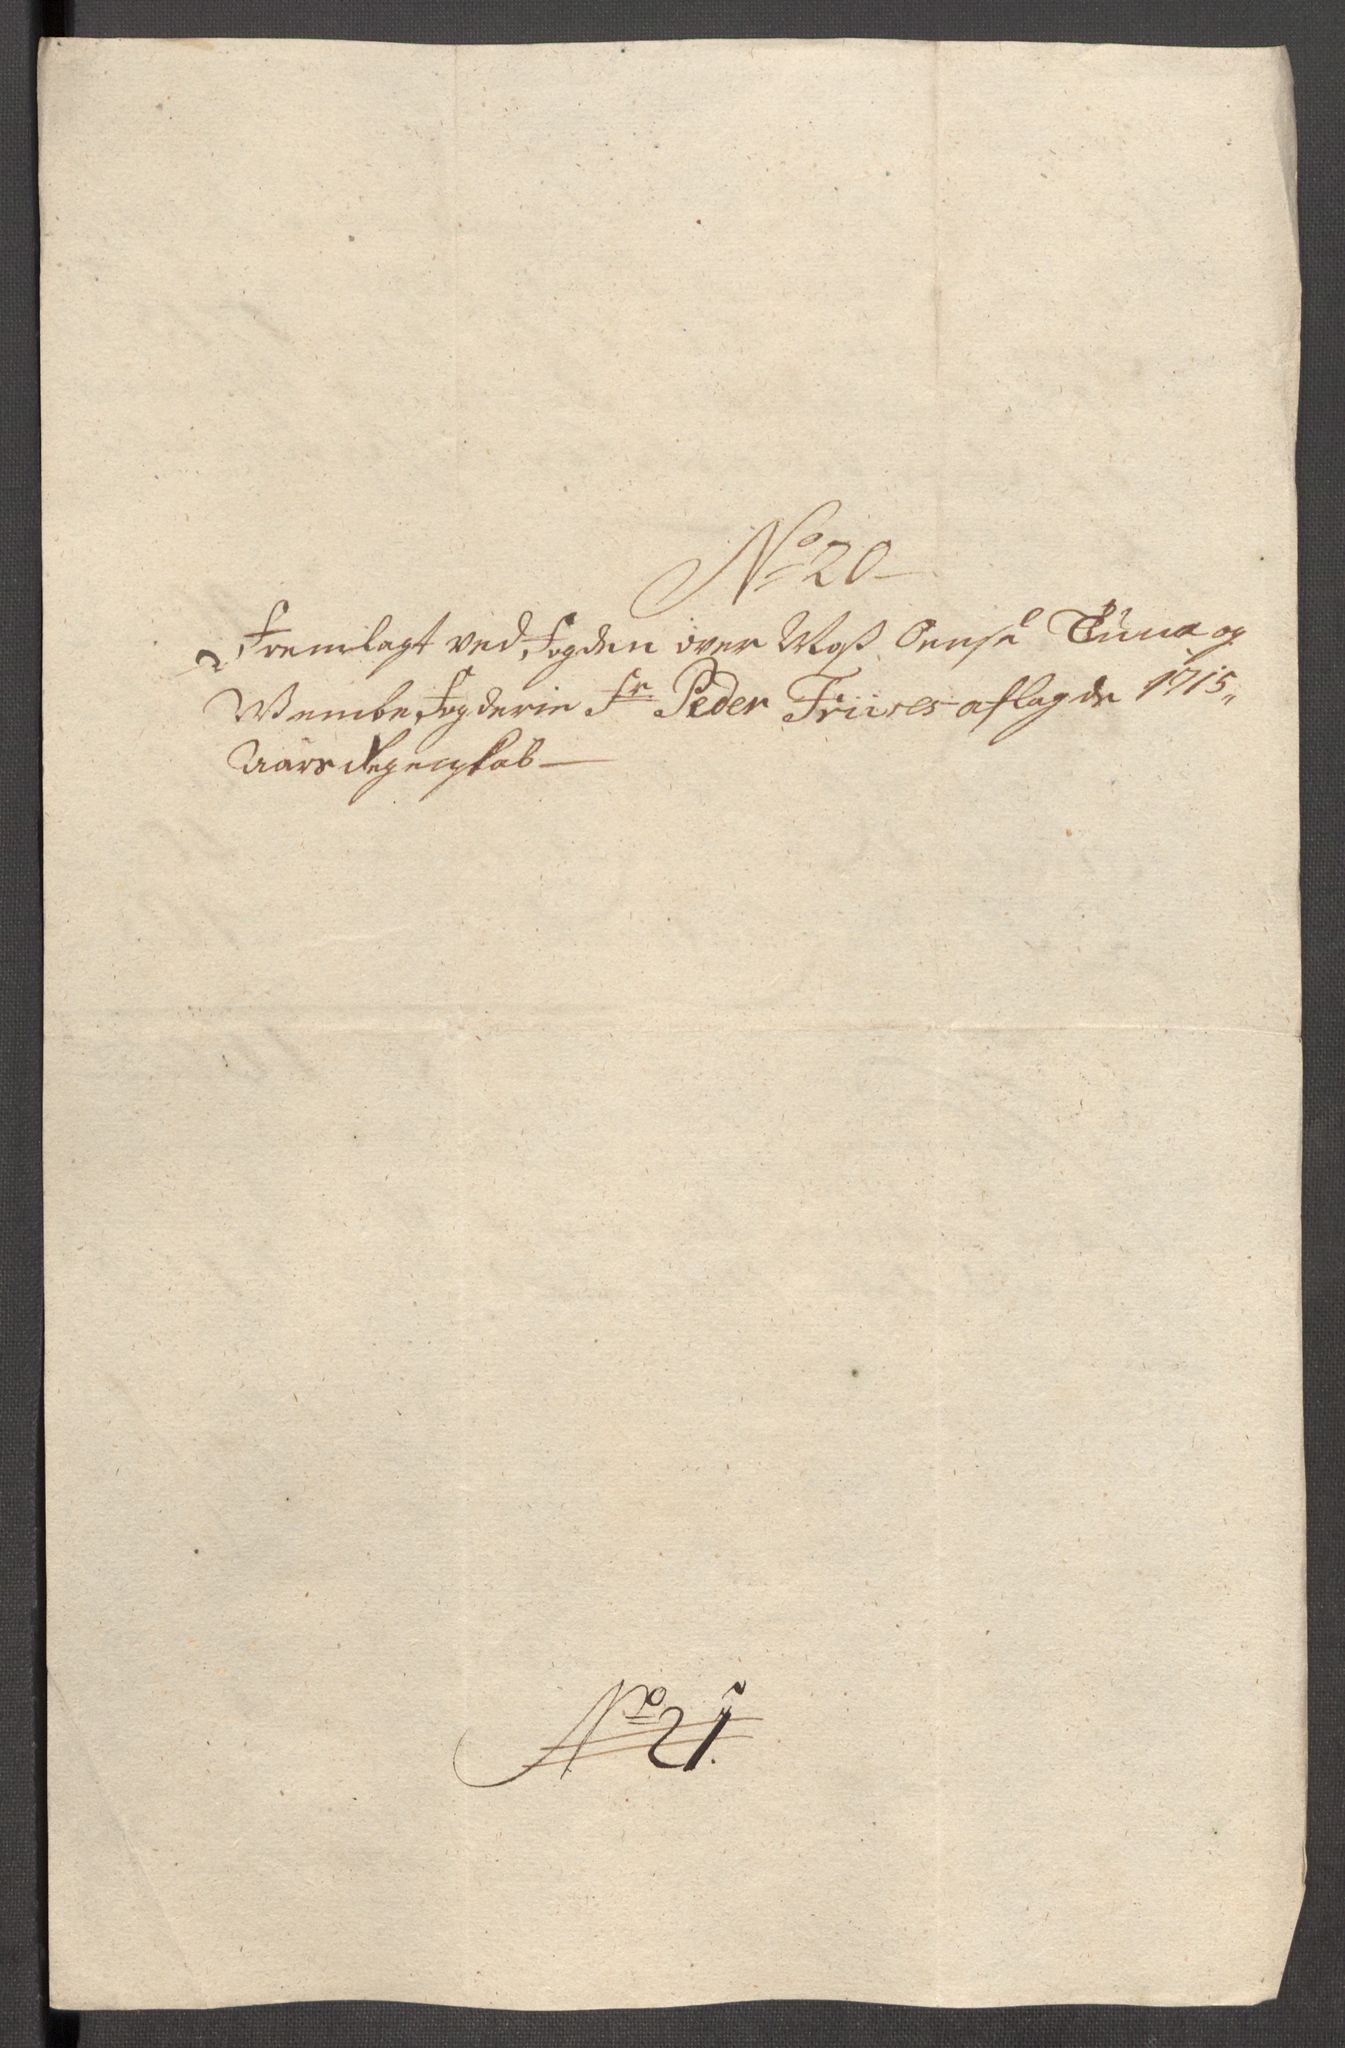 No 20
Fremlagt ved Fogden över Woß Sensȯ Tuna og
Wembe Fogderie Sr Peder Friises aflagde 1715
Aars Regenskab
No 21